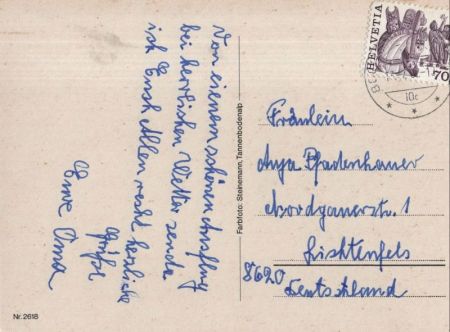 Von einem schönen Ausflug
bei herrlichen Wetter sende
ich Euch Allen recht herzliche
Grüße
Eure Oma
Nr. 2618
Farbfoto: Steinemann, Tannenbodenalp
HELVETIA
70
10c
Fräulein
Anja Pfadenhauer
1
Lichtenfels
8620
Deutschland